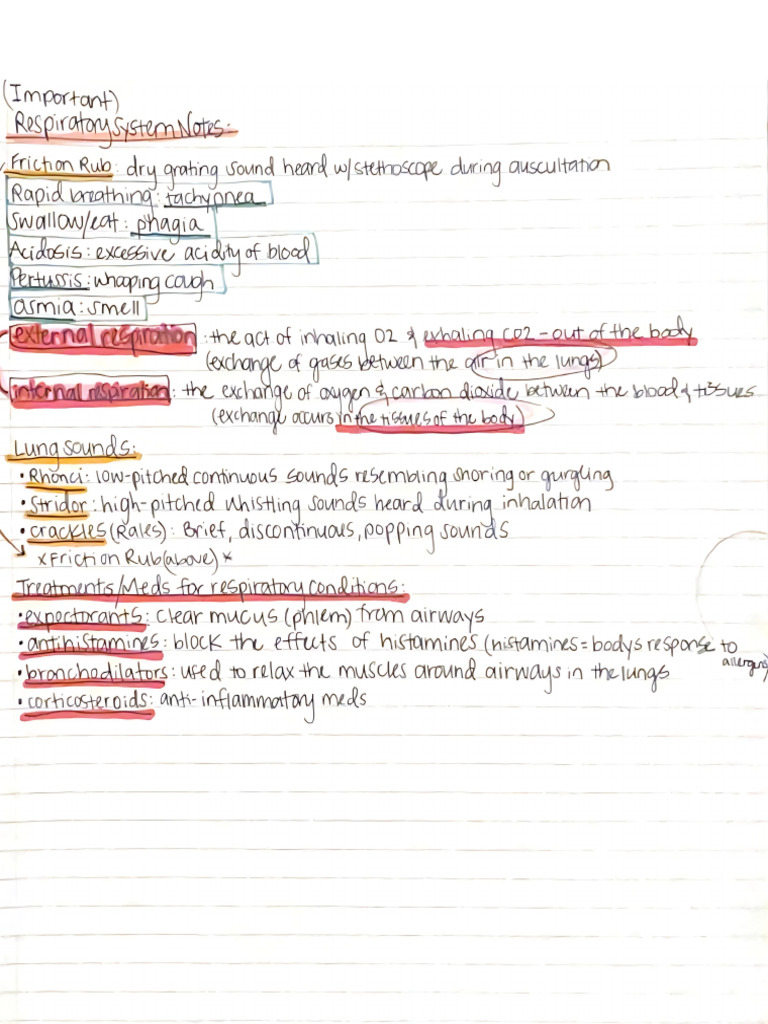 (Important)
Respiratory System Notes:
Friction Rub: dry grating sound heard w/stethoscope during auscultation
Rapid breathing: tachypnea
Swallow/eat: phagia
Acidosis: excessive acidity of blood
Pertussis: whooping cough
osmia: smell
external respiration: the act of inhaling O2 & exhaling CO2 - out of the body
(exchange of gases between the air in the lungs)
internal respiration: the exchange of oxygen & carbon dioxide between the blood & tissues
(exchange occurs in the tissues of the body)
Lung sounds:
• Rhonci: low-pitched continuous sounds resembling snoring or gurgling
• Stridor: high-pitched whistling sounds heard during inhalation
• crackles (Rales): Brief, discontinuous, popping sounds
x Friction Rub (above) x
Treatments/Meds for respiratory conditions:
• expectorants: clear mucus (phlem) from airways
• antihistamines: block the effects of histamines (histamines = bodys response to allergens)
• bronchodilators: used to relax the muscles around airways in the lungs
• corticosteroids: anti-inflammatory meds